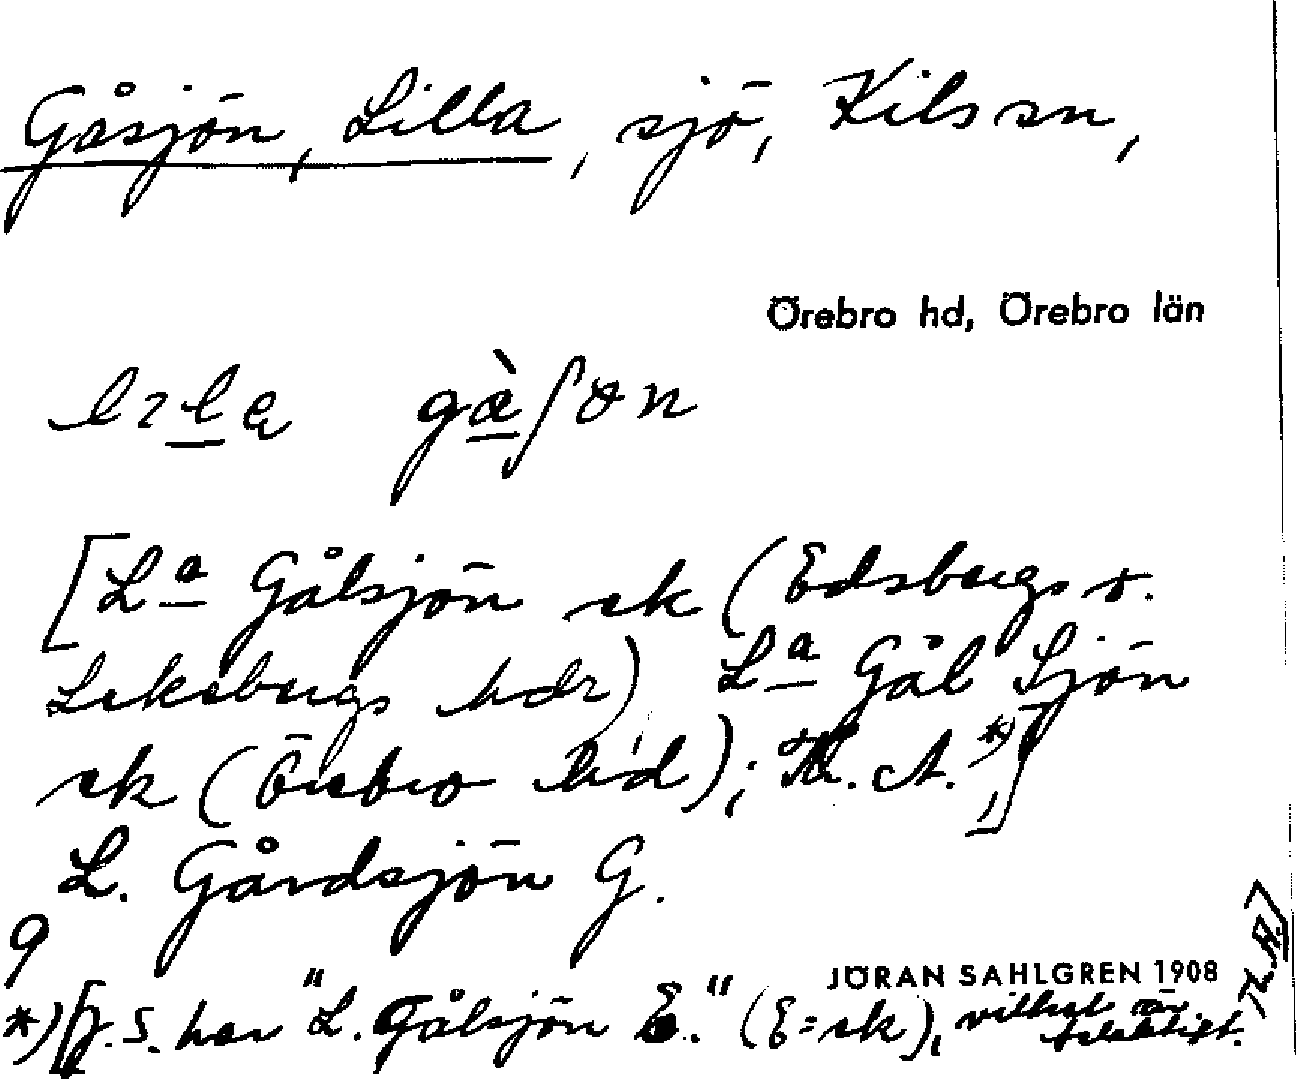 Gåsjön, Lilla, sjö, Kils sn,
Örebro hd, Örebro län
[Lª Gålsjön ek (Edsbergs o.
Lekebergs hdr), Lª Gål Sjön
ek (Örebro hd);
L. Gårdsjön G.
9
JÖRAN SAHLGREN 1908
*) [J. S. har "L. Gålsjön E." (E = ek), vilket är felaktigt.